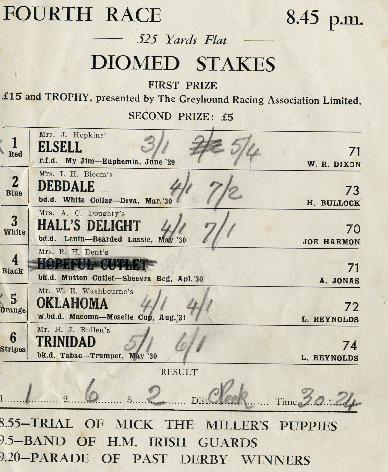 FOURTH RACE 8.45 p.m.
525 Yards Flat
DIOMED STAKES
FIRST PRIZE
£15 and TROPHY, presented by The Greyhound Racing Association Limited.
SECOND PRIZE: £5
1 Red Mrs. J. Hopkins'
ELSELL 3/1 5/4 71
r.f.d. My Jim—Euphemia, June '29 W. R. DIXON
2 Blue Mrs. I. H. Bloom's
DEBDALE 4/1 7/2 73
bd.d. White Collar—Diva, Mar. '30 H. BULLOCK
3 White Mrs. A. C. Doughty's
HALL'S DELIGHT 4/1 7/1 70
bd.d. Lenin—Bearded Lassie, May '30 JOE HARMON
4 Black Mrs. R. H. Dent's
HOPEFUL CUTLET 71
bk.d. Mutton Cutlet—Sheevra Beg, Apl. '30 A. JONAS
5 Orange Mr. W. E. Washbourne's
OKLAHOMA 4/1 4/1 72
w.bd.d. Macoma—Moselle Cup, Aug. '31 L. REYNOLDS
6 Stripes Mr. H. J. Bullen's
TRINIDAD 5/1 6/1 74
bk.d. Tabac—Trumpet, May '30 L. REYNOLDS
RESULT
1 1 2 6 3 2 Dis. Time 30.24
8.55—TRIAL OF MICK THE MILLER'S PUPPIES
9.5—BAND OF H.M. IRISH GUARDS
9.20—PARADE OF PAST DERBY WINNERS